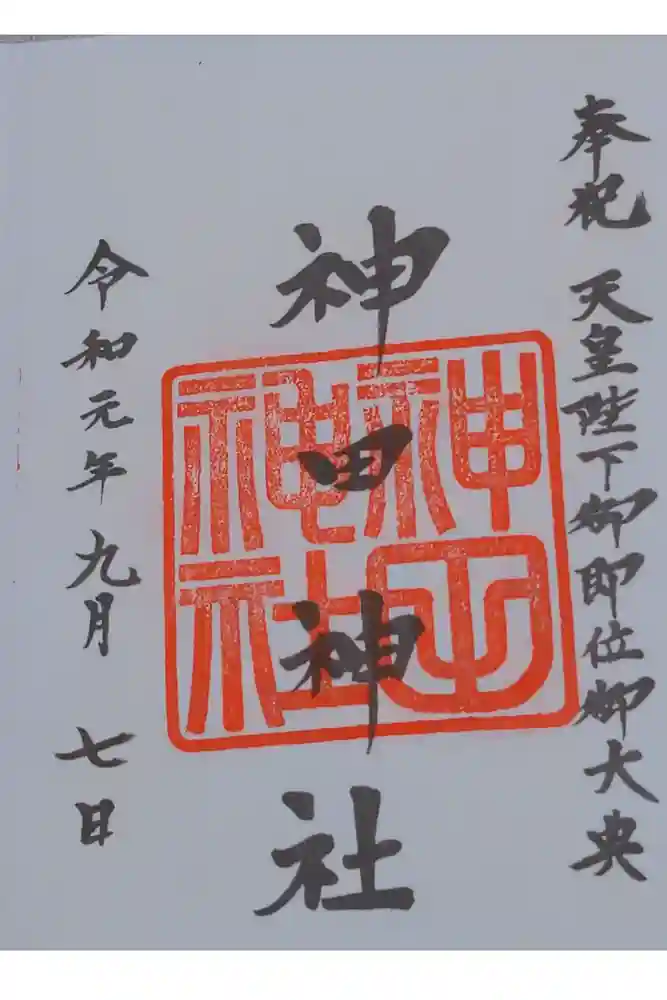 奉祝 天皇陛下御即位御大典
神田神社
神田神社
令和元年九月 七日